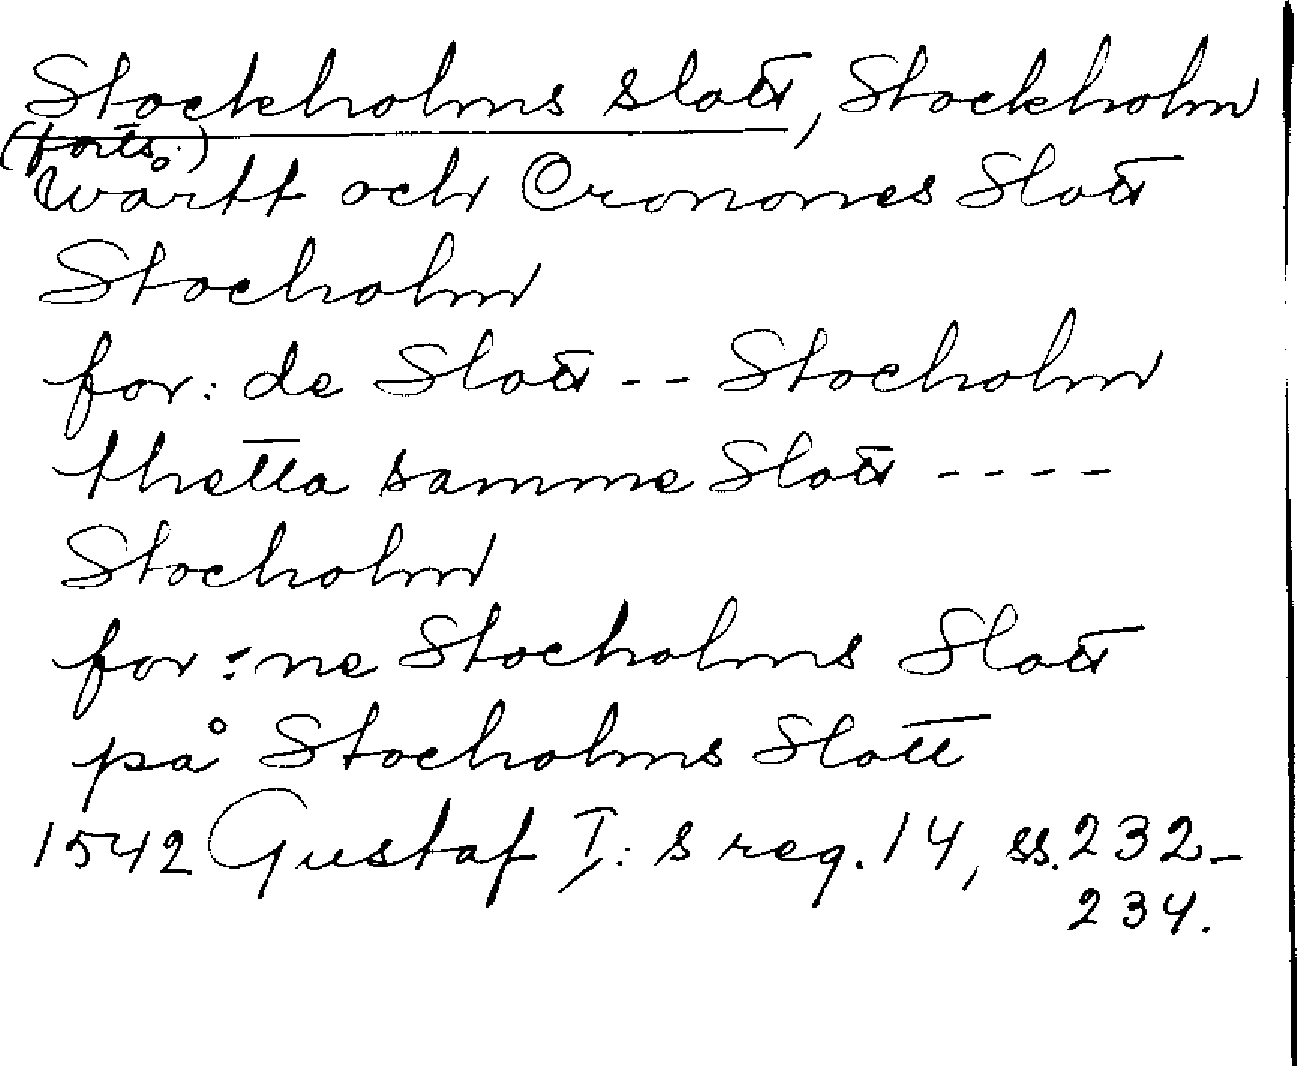 Stockholms slott, Stockholm
(forts.)
wårtt och Cronones Slott
Stocholm
for: de Slott -- Stocholm
thetta samme Slott ----
Stocholm
for:ne Stocholms Slott
på Stocholms Slott
1542 Gustaf I: s reg. 14, ss. 232-
234.